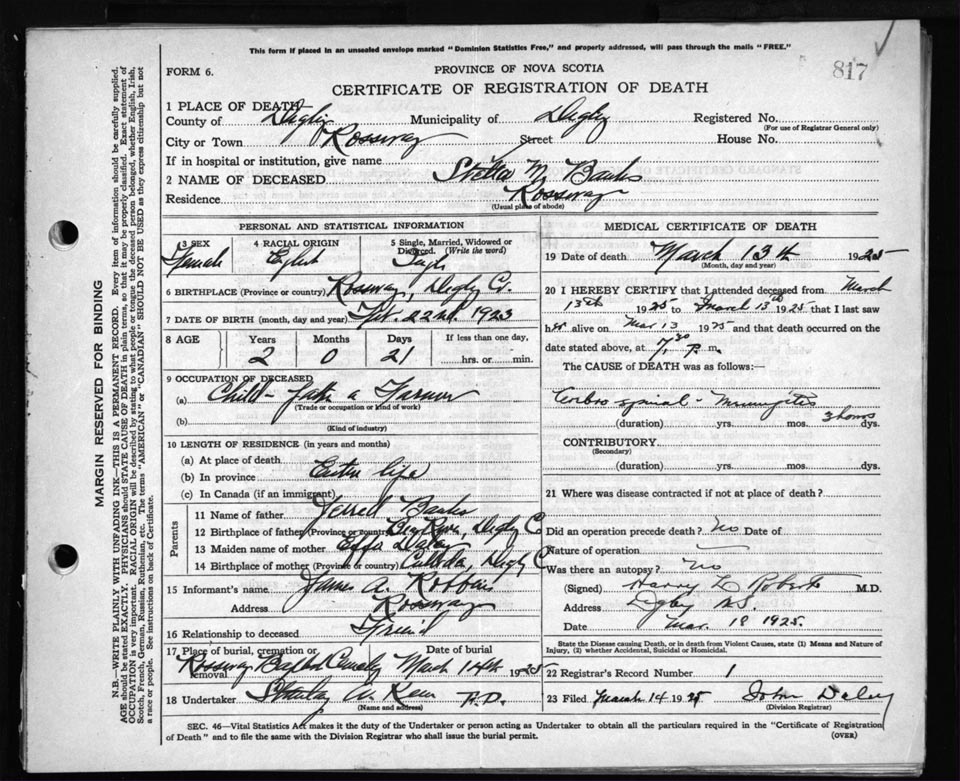 This form if placed in an unsealed envelope marked "Dominion Statistics Free," and properly addressed, will pass through the mails "FREE."
817
FORM 6. PROVINCE OF NOVA SCOTIA
CERTIFICATE OF REGISTRATION OF DEATH
1 PLACE OF DEATH
County of Digby Municipality of Digby Registered No.
(For use of Registrar General only)
City or Town Rossway Street House No.
If in hospital or institution, give name
2 NAME OF DECEASED Stella M. Banks
Residence Rossway
(Usual place of abode)
PERSONAL AND STATISTICAL INFORMATION
3 SEX 4 RACIAL ORIGIN 5 Single, Married, Widowed or Divorced. (Write the word)
Female English Single
6 BIRTHPLACE (Province or country) Rossway, Digby Co.
7 DATE OF BIRTH (month, day and year) 22nd 1923
8 AGE Years Months Days If less than one day,
2 0 21 hrs. or min.
9 OCCUPATION OF DECEASED
(a) Child - father a Farmer
(Trade or occupation or kind of work)
(b)
(Kind of industry)
10 LENGTH OF RESIDENCE (in years and months)
(a) At place of death
(b) In province Entire life
(c) In Canada (if an immigrant)
Parents
11 Name of father Banks
12 Birthplace of father (Province or country) Digby Co
13 Maiden name of mother Effa
14 Birthplace of mother (Province or country) Culloden, Digby C
15 Informant's name James A. Robbins
Address Rossway
16 Relationship to deceased Friend
17 Place of burial, cremation or removal Date of burial
Rossway Baptist Cemetery March 14th 1925
18 Undertaker Stanley A.
(Name and address)
MEDICAL CERTIFICATE OF DEATH
19 Date of death March 13th 1925
(Month, day and year)
20 I HEREBY CERTIFY that I attended deceased from March
13th 1925 to March 13th 1925 that I last saw
her alive on Mar 13 1925 and that death occurred on the
date stated above, at 7.30 P. m.
The CAUSE of DEATH was as follows:—
Cerebro spinal - Meningitis
(duration) yrs. mos. 3 hours dys.
CONTRIBUTORY.
(Secondary)
(duration) yrs. mos. dys.
21 Where was disease contracted if not at place of death?
Did an operation precede death? No Date of
Nature of operation
Was there an autopsy? No
(Signed) Harry L Roberts M.D.
Address Digby N.S.
Date Mar. 18 1925.
State the Disease causing Death, or in death from Violent Causes, state (1) Means and Nature of Injury, (2) whether Accidental, Suicidal or Homicidal.
22 Registrar's Record Number 1
23 Filed March 14 1925 John Daley
(Division Registrar)
SEC. 46—Vital Statistics Act makes it the duty of the Undertaker or person acting as Undertaker to obtain all the particulars required in the "Certificate of Registration
of Death" and to file the same with the Division Registrar who shall issue the burial permit. (OVER)
MARGIN RESERVED FOR BINDING
N.B.—WRITE PLAINLY WITH UNFADING INK—THIS IS A PERMANENT RECORD. Every item of information should be carefully supplied.
AGE should be stated EXACTLY. PHYSICIANS should STATE CAUSE OF DEATH in plain terms, so that it may be properly classified. Exact statement of
OCCUPATION is very important. RACIAL ORIGIN will be described by stating to what people or tongue the deceased person belonged, whether English, Irish,
Scotch, French, German, Russian, Ruthenian, etc. The terms "AMERICAN" or "CANADIAN" SHOULD NOT BE USED as they express citizenship but not
a race or people. See instructions on back of Certificate.